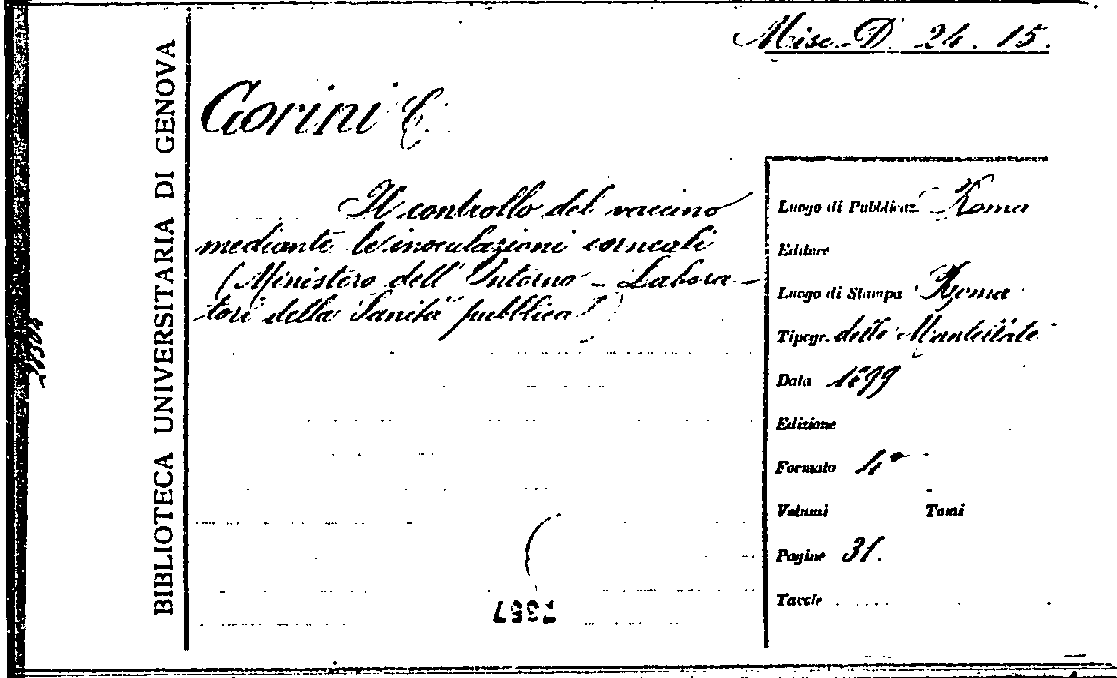 Misc. D 24. 15.
BIBLIOTECA UNIVERSITARIA DI GENOVA
Gorini C.
Il controllo del vaccino
mediante le inoculazioni corneali
(Ministero dell'Interno - Labora-
tori della Sanità pubblica)
Luogo di Pubblicaz. Roma
Editore
Luogo di Stampa Roma
Tipogr. delle Mantellate
Data 1899
Edizione
Formato 4°
Volumi Tomi
Pagine 31.
Tavole